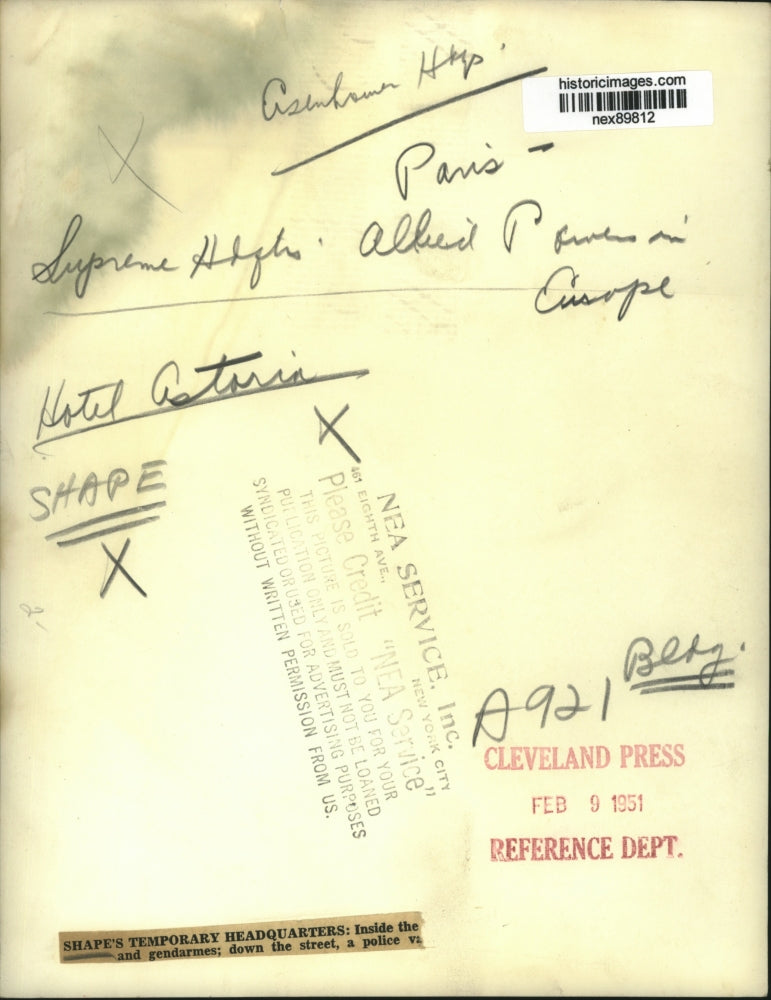 historicimages.com
nex89812
Eisenhower Hqs.
Paris -
Supreme Hdqtrs. Allied Powers in
Europe
Hotel Astoria
X
SHAPE
X
X
NEA SERVICE, Inc.
461 EIGHTH AVE., NEW YORK CITY
Please Credit "NEA Service"
THIS PICTURE IS SOLD TO YOU FOR YOUR
PUBLICATION ONLY AND MUST NOT BE LOANED
SYNDICATED OR USED FOR ADVERTISING PURPOSES
WITHOUT WRITTEN PERMISSION FROM US.
2
Bldg.
A921
CLEVELAND PRESS
FEB 9 1951
REFERENCE DEPT.
SHAPE'S TEMPORARY HEADQUARTERS: Inside the
and gendarmes; down the street, a police